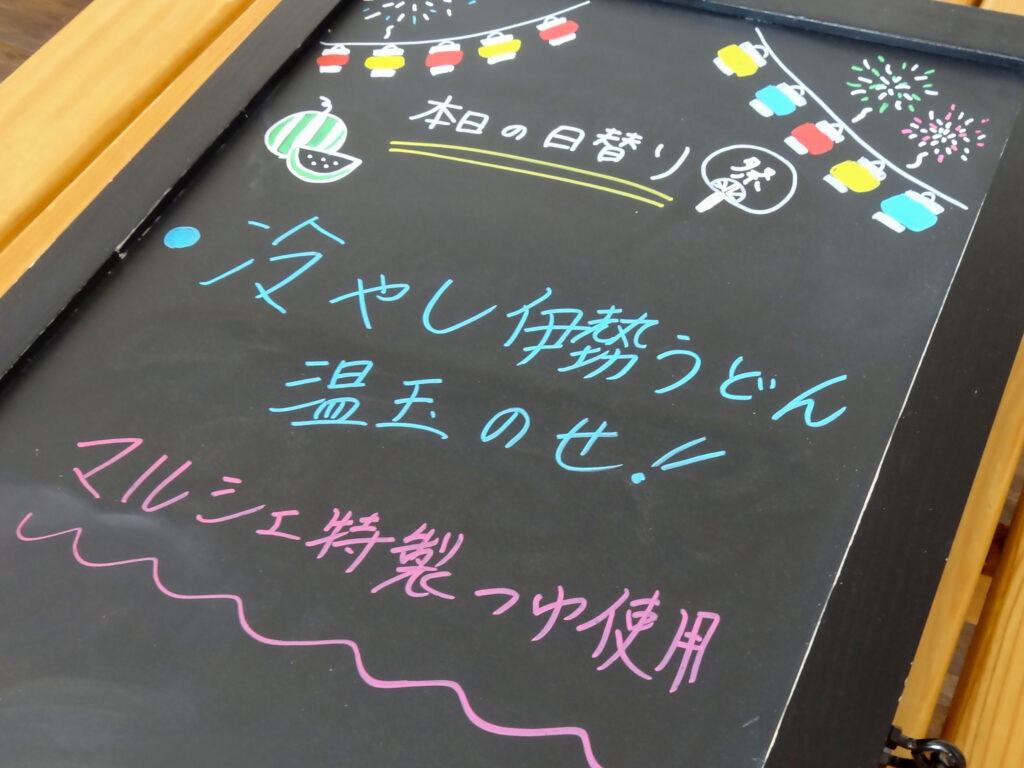 本日の日替り
祭
・冷やし伊勢うどん
温玉のせ!!
マルシェ特製つゆ使用